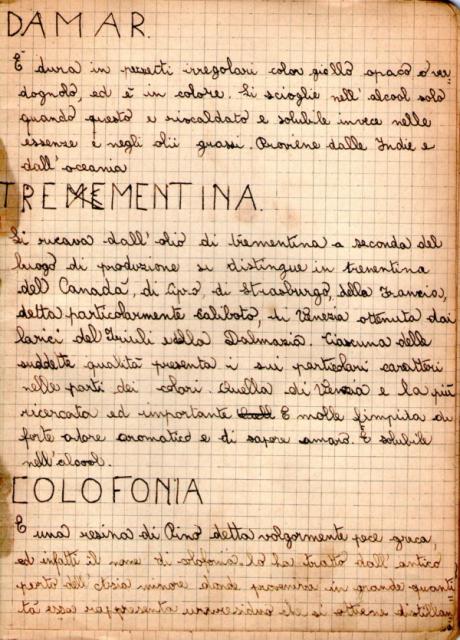 DAMAR.
È dura in pezzetti irregolari color giallo opaco o ver=
dognolo, ed è in colore. Si scioglie nell'alcool solo
quando questo e riscaldato e solubile invece nelle
essenze e negli olii grassi. Proviene dalle Indie e
dall'oceania
TREMENTINA.
Si ricava dall'olio di trementina a seconda del
luogo di produzione si distingue in trementina
del Canadà, di Cipro, di Strasburgo, della Francia,
detta particolarmente, di Venezia ottenuta dai
larici del Friuli e della Dalmazia. Ciascuna delle
suddette qualità presenta i sui particolari caratteri
nelle parti dei colori Quella di Venezia e la più
ricercata ed importante È molle limpida di
forte odore aromatico e di sapore amaro. È solubile
nell'alcool.
COLOFONIA
È una resina di Pino detta volgarmente pece greca,
ed infatti il nome di colofonia lo ha tratto dall'antico
porto dell'Asia minore donde proveniva in grande quanti=
tà essa rappresenta che si ottiene distillan=